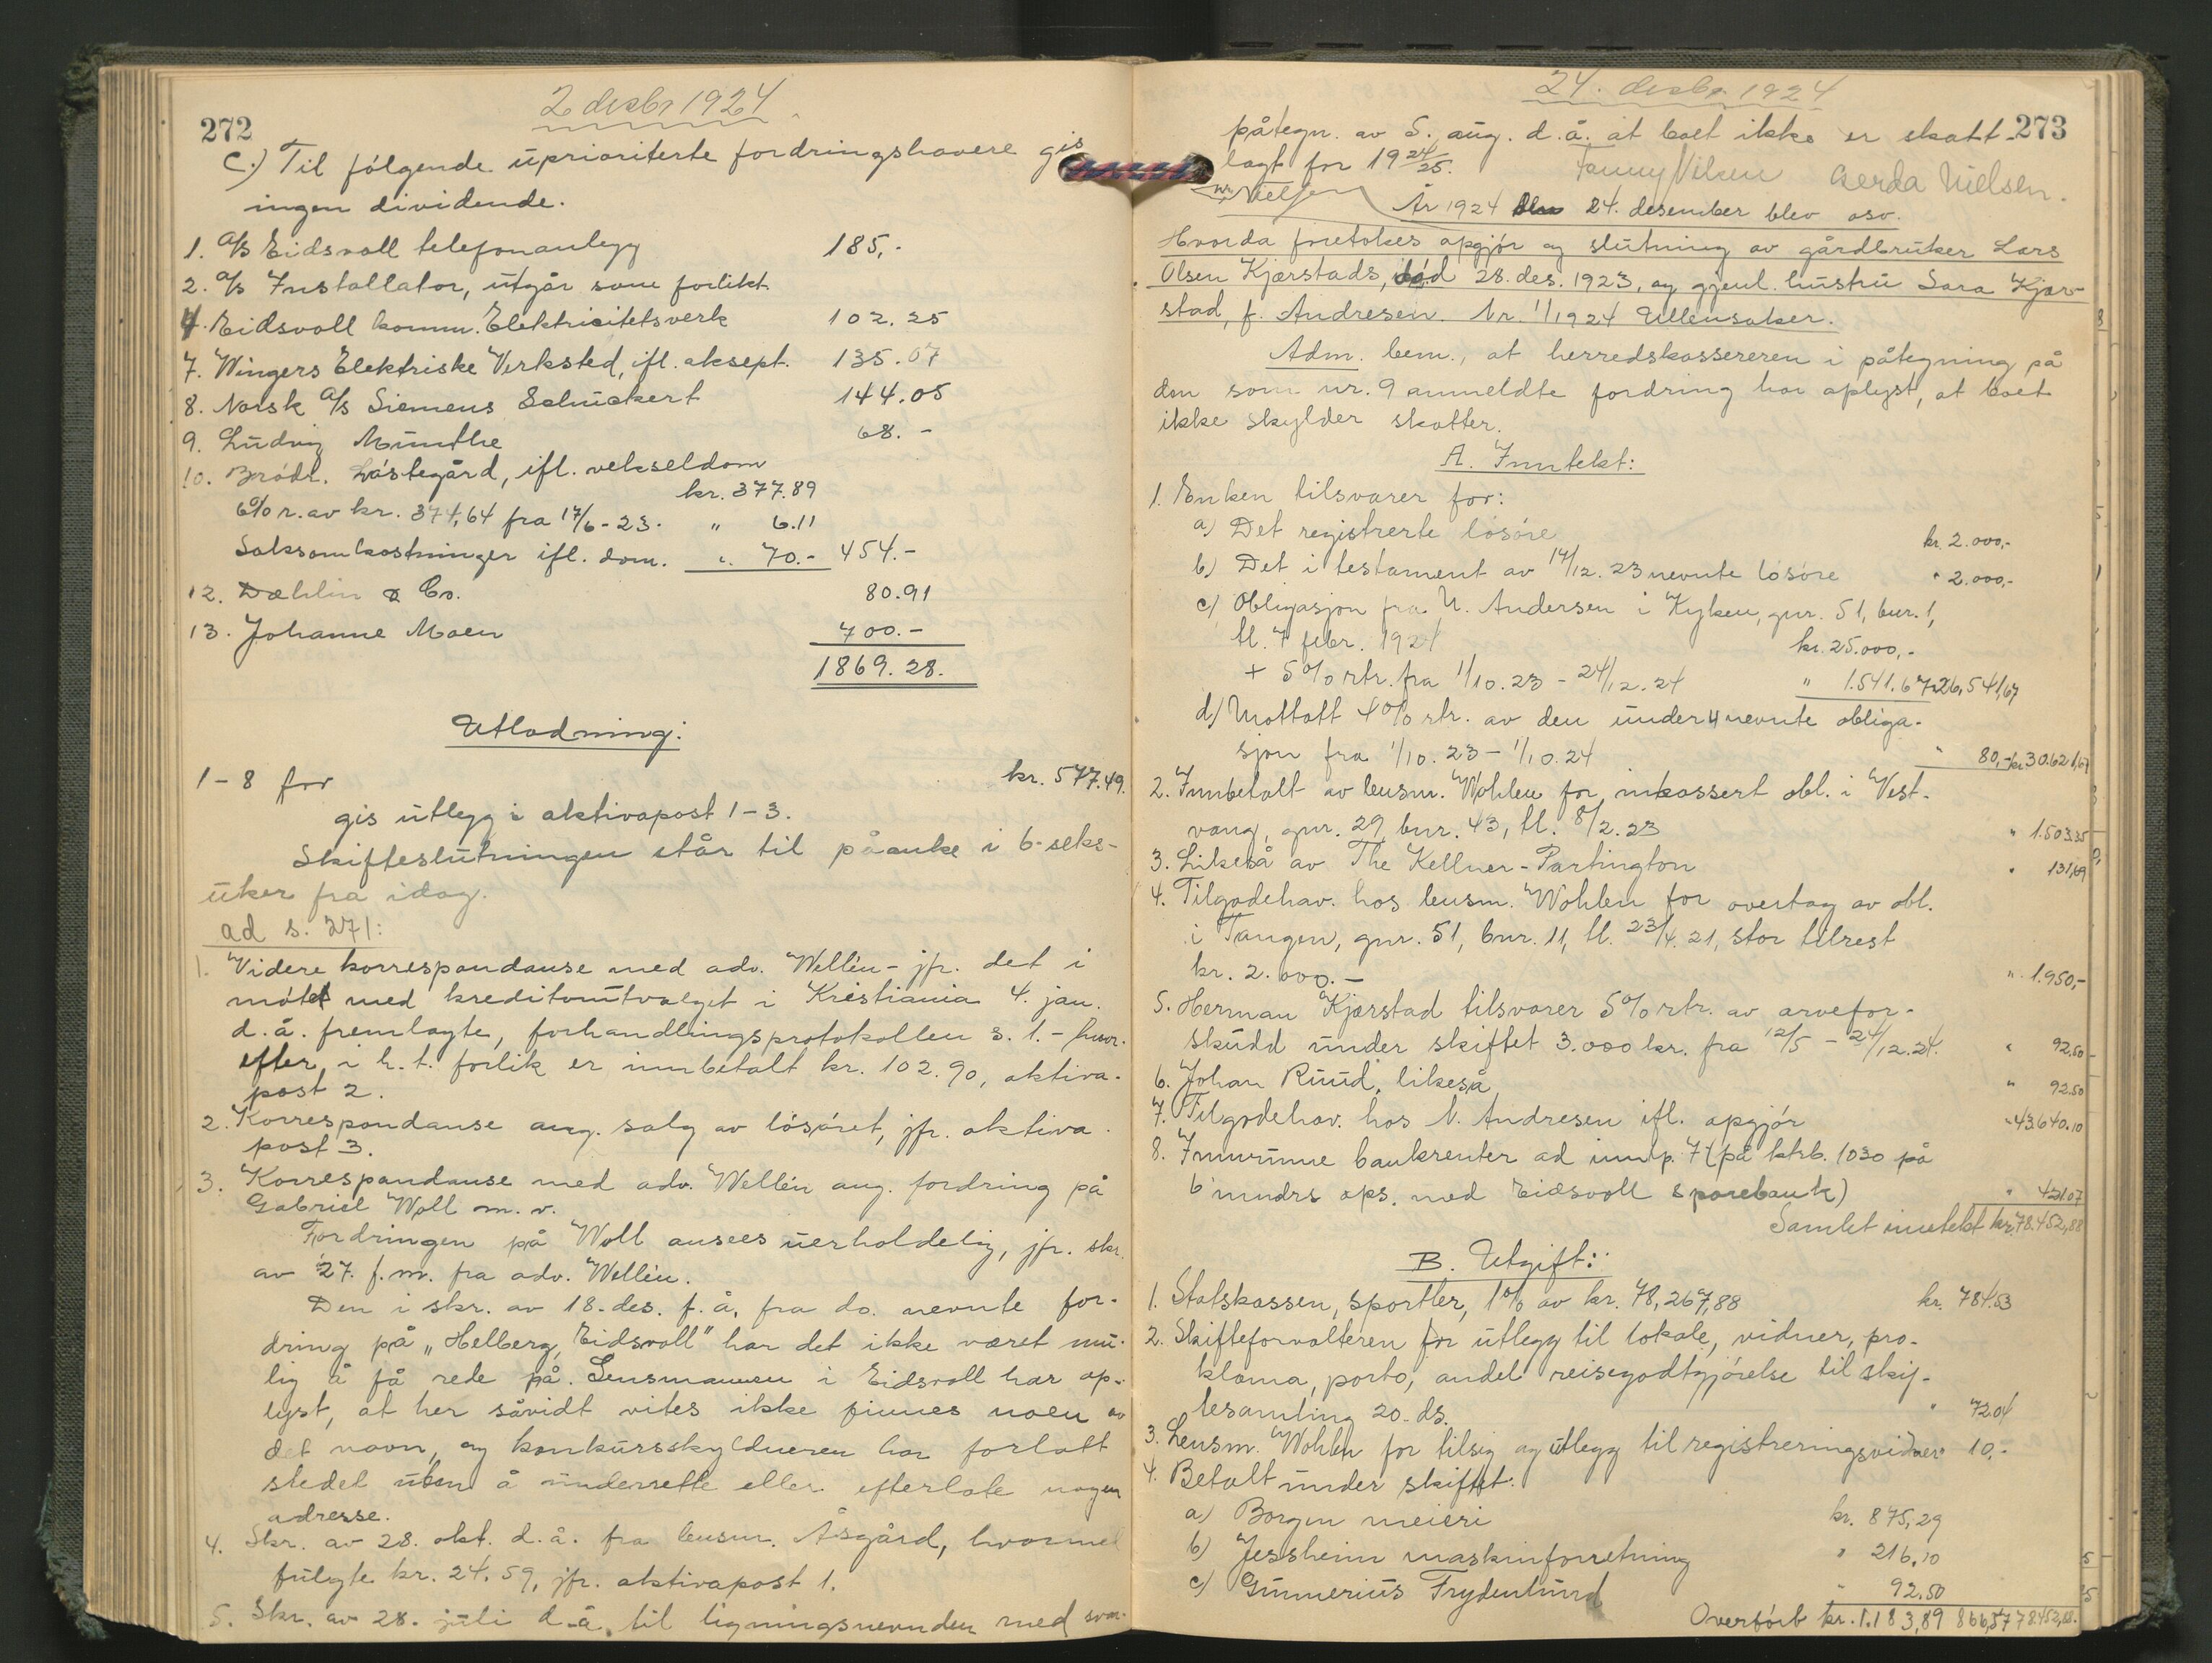 272
2 desbr 1924
C.) Til følgende uprioriterte fordringshavere gis
ingen dividende.
1. A/S Eidsvoll telefonanlegg 185,-
2. A/S Installator, utgår som forlikt.
4. Eidsvoll komm. Elektricitetsverk 102.25
7. Wingers Elektriske Verksted, ifl. aksept. 135.07
8. Norsk A/S Siemens Schuckert 144.05
9. Ludvig Munthe 68.-
10. Brødr. Låstegård, ifl. vekseldom
kr. 377.89
6% r. av kr. 374,64 fra 17/6-23. " 6.11
Saksomkostninger ifl. dom. " 70.- 454.-
12. Dæhlin & Co. 80.91
13. Johanne Moen 700.-
1869.28.
Utlodning:
1-8 for kr. 577.49.
gis utlegg i aktivapost 1-3.
Skifteslutningen står til påanke i 6-seks-
uker fra idag.
ad s. 271:
1. Videre korrespondanse med adv. Wellén - jfr. det i
møtet med kreditorutvalget i Kristiania 4. jan.
d.å. fremlagte, forhandlingsprotokollen s. 1. - hvor-
efter i h. t. forlik er innbetalt kr. 102.90, aktiva-
post 2.
2. Korrespondanse ang. salg av løsøret, jfr. aktiva-
post 3.
3. Korrespondanse med adv. Wellén ang. fordring på
Gabriel Woll m. v.
Fordringen på Woll ansees uerholdelig, jfr. skr.
av 27. f.m. fra adv. Wellén.
Den i skr. av 18. des. f.å. fra do. nevnte for-
dring på "Helberg, Eidsvoll" har det ikke været mu-
lig å få rede på. Lensmannen i Eidsvoll har op-
lyst, at her såvidt vites ikke finnes noen av
det navn, og konkursskyldneren har forlatt
stedet uten å underrette eller efterlate nogen
adresse.
4. Skr. av 28. okt. d.å. fra lensm. Åsgård, hvormed
fulgte kr. 24,59, jfr. aktivapost 1.
5. Skr. av 28. juli d.å. til ligningsnevnden med svar-
24. desbr. 1924
273
påtegn. av 5. aug. d.å. at boet ikke er skatt-
lagt for 1924/25. Fanny Nilsen Gerda Nielsen.
W. Nielsen
År 1924 den 24. desember blev osv.
Hvorda foretokes opgjør og slutning av gårdbruker Lars
Olsen Kjærstads, død 28. des. 1923, og gjenl. hustru Sara Kjær-
stad, f. Andresen. Nr. 11/1924 Ullensaker.
Adm. bem., at herredskassereren i påtegning på
den som nr. 9 anmeldte fordring har oplyst, at boet
ikke skylder skatter.
A. Inntekt:
1. Enken tilsvarer for:
a) Det registrerte løsøre kr. 2.000,-
b) Det i testament av 14/12.23 nevnte løsøre " 2.000,-
c) Obligasjon fra N. Andersen i Kyken, gnr. 51, bnr. 1,
tl. 7 febr. 1924 kr. 25.000,-
+ 5% rtr. fra 1/10.23 - 24/12.24 " 1.541.67 " 26,541,67
d) Mottatt 4% rtr. av den under 4 nevnte obliga-
sjon fra 1/10.23 - 1/10.24 " 80,- kr 30.621,67
2. Innbetalt av lensm. Wohlen for inkassert obl. i Vest-
vang, gnr. 29, bnr. 43, tl. 8/2.23 " 1.503.35
3. Likeså av The Kellner-Partington " 131,69
4. Tilgodehav. hos lensm. Wohlen for overtag av obl.
i Tangen, gnr. 51, bnr. 11, tl. 23/4.21, stor tilrest
kr. 2.000.- " 1.950,-
5. Herman Kjærstad tilsvarer 5% rtr. av arvefor-
skudd under skiftet 3.000 kr. fra 12/5 - 24/12.24. " 92.50
6. Johan Ruud, likeså " 92.50
7. Tilgodehav. hos N. Andresen ifl. opgjør " 43.640.10
8. Innvunne bankrenter ad inntp. 7 (på ktrb. 1030 på
6 mndrs ops. med Eidsvoll sparebank) " 421.07
Samlet inntekt kr. 78.452,88
B. Utgift:
1. Statskassen, sportler, 1% av kr. 78,267,88 kr. 784.53
2. Skifteforvalteren for utlegg til lokale, vidner, pro-
klama, porto, andel reisegodtgjørelse til skif-
tesamling 20. ds. " 72.04
3. Lensm. Wohlen for tilsig og utlegg til registreringsvidner " 10.-
4. Betalt under skiftet:
a) Borgen meieri kr. 875,29
b) Jessheim maskinforretning " 216,10
c) Gunnerius Frydenlund " 92.50
Overført kr. 1.183,89 866,57 78.452,88.